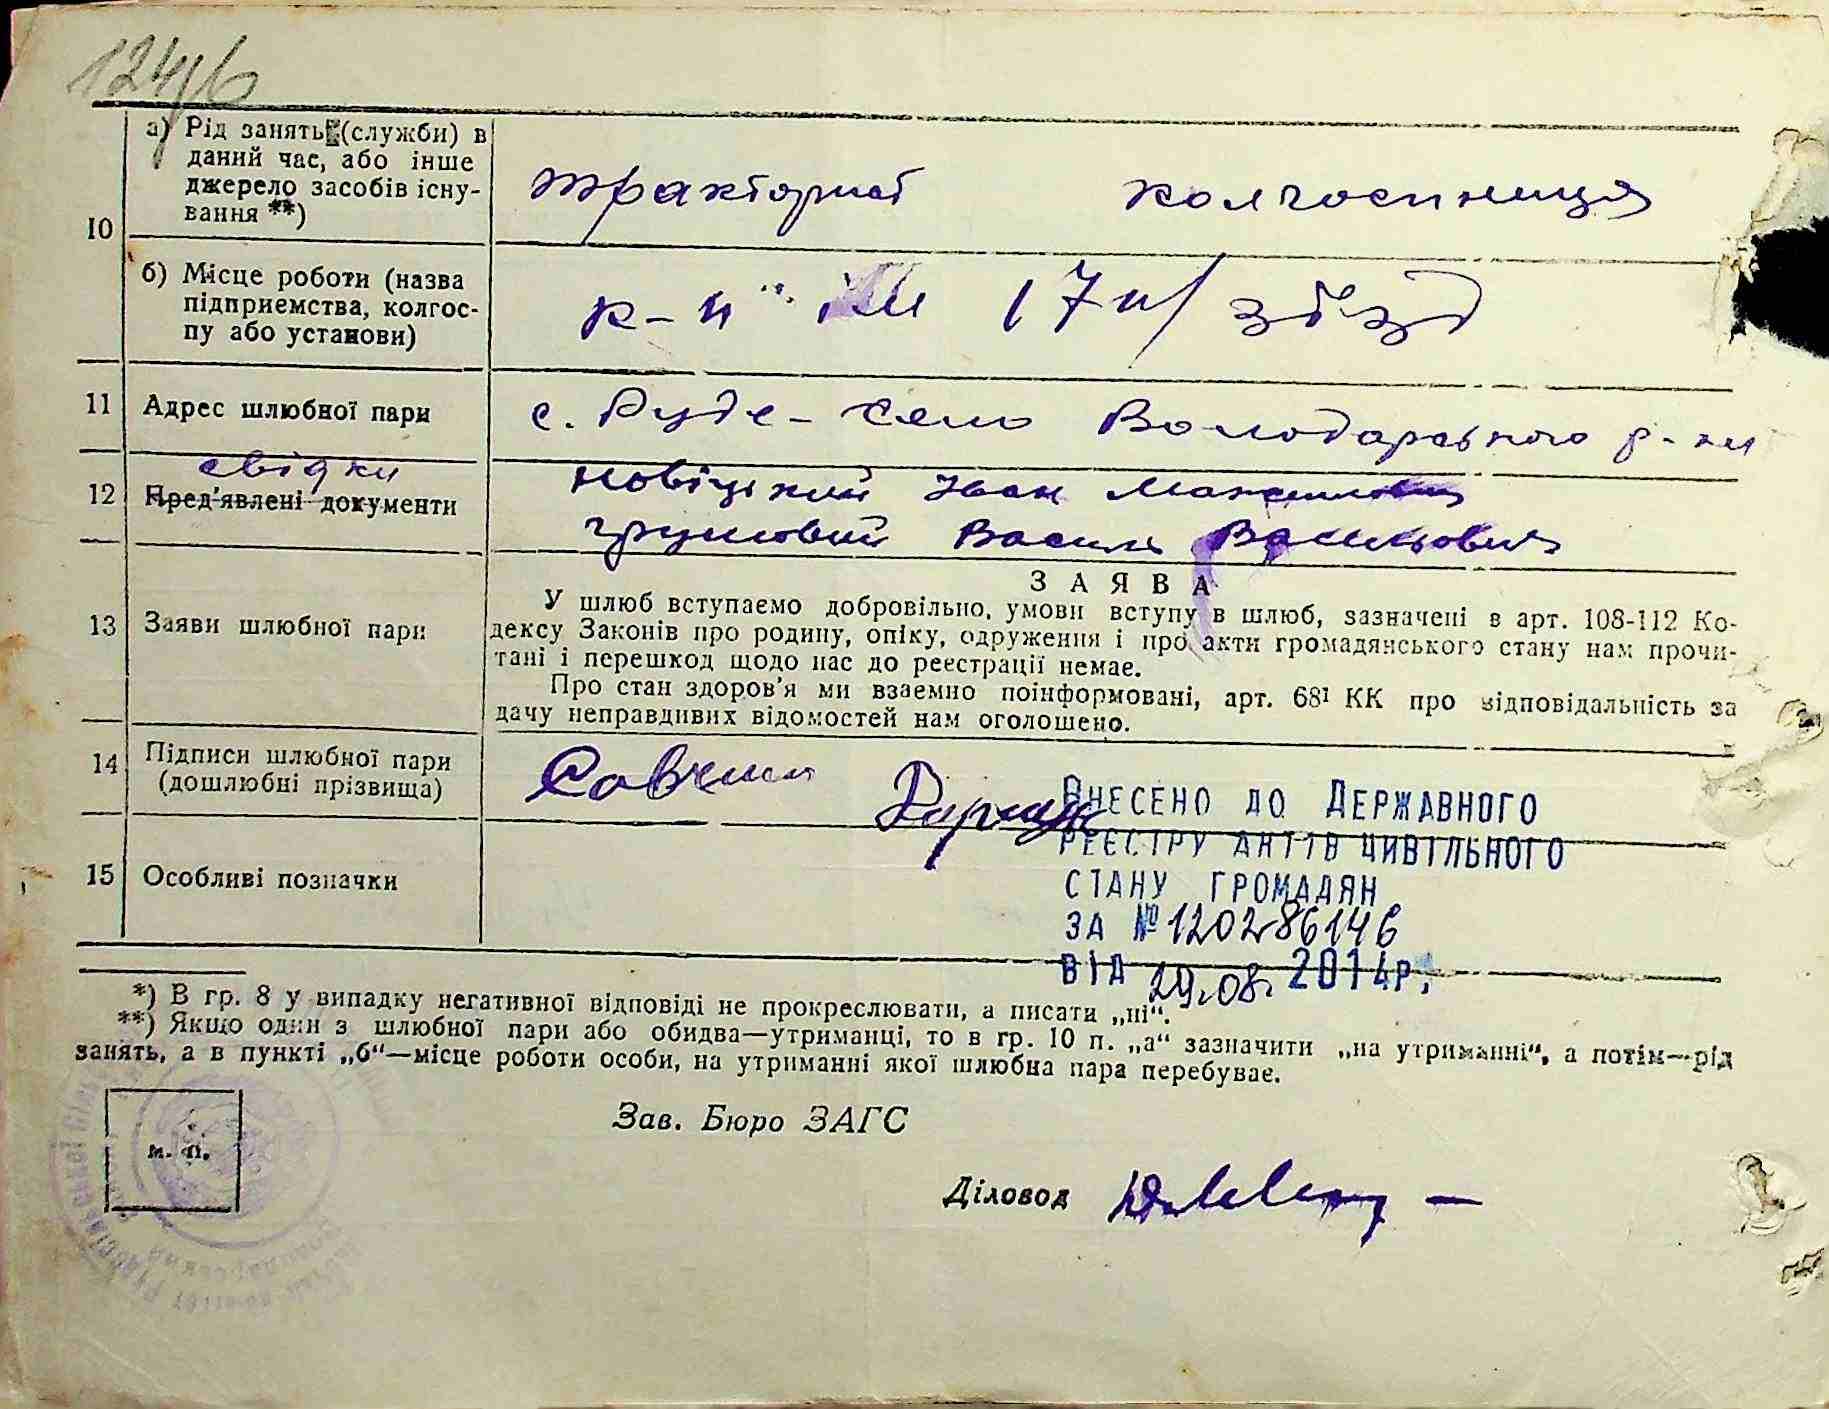 124/6
а) Рід занять (служби) в
даний час, або інше
джерело засобів існу-
вання **)
тракторист колгоспниця
10
б) Місце роботи (назва
підприемства, колгос-
пу або установи)
к-п 17 п/ зїзд
11 Адрес шлюбної пари
с. Руде-село Володарського р-ну
свідки
12 Пред'явлені документи
Новіцкий Іван Максимович
Грушовий Василь Васильович
З А Я В А
13 Заяви шлюбної пари
У шлюб вступаемо добровільно, умови вступу в шлюб, зазначені в арт. 108-112 Ко-
дексу Законів про родину, опіку, одруження і про акти громадянського стану нам прочи-
тані і перешкод щодо нас до реестрації немае.
Про стан здоров'я ми взаемно поінформовані, арт. 68¹ КК про відповідальність за
дачу неправдивих відомостей нам оголошено.
14 Підписи шлюбної пари
(дошлюбні прізвища)
15 Особливі позначки
Внесено до Державного
реєстру актів цивільного
стану громадян
за № 120286146
від 29.08. 2014р.
*) В гр. 8 у випадку негативної відповіді не прокреслювати, а писати „ні“.
**) Якщо один з шлюбної пари або обидва—утриманці, то в гр. 10 п. „а“ зазначити „на утриманні“, а потім—рід
занять, а в пункті „б“—місце роботи особи, на утриманні якої шлюбна пара перебувае.
м. п.
Зав. Бюро ЗАГС
Діловод